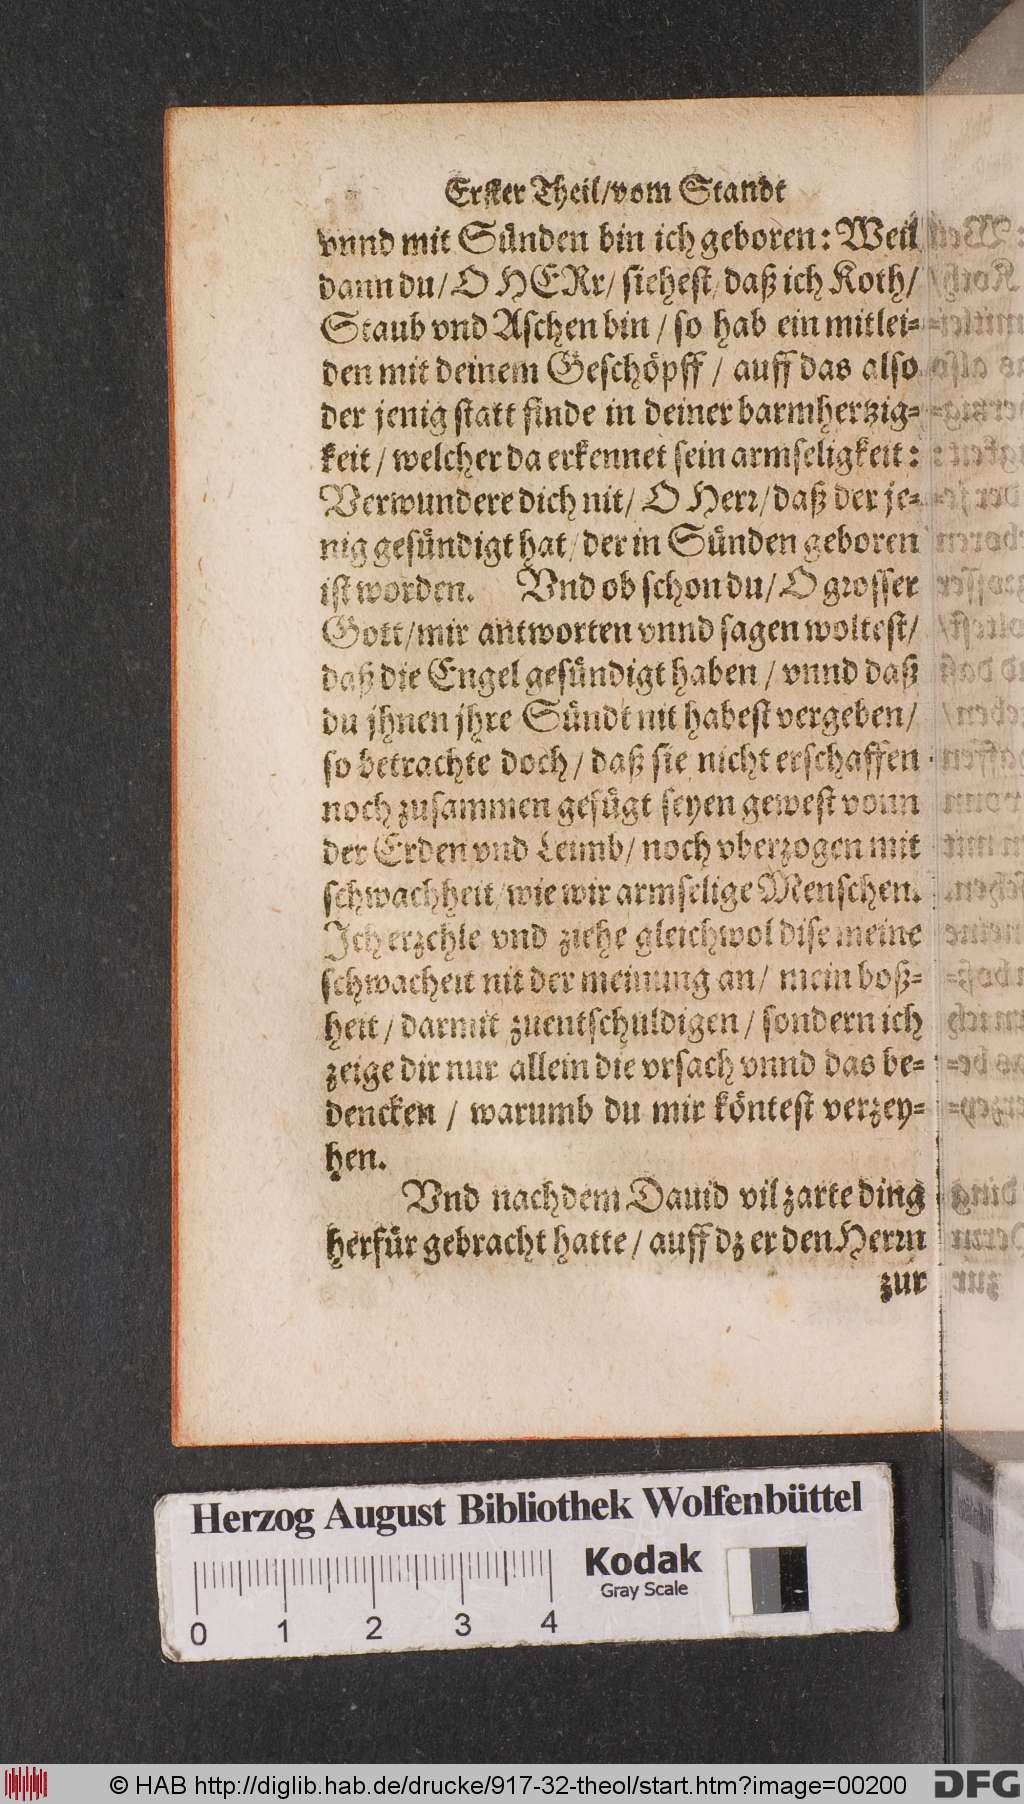 Erster Theil/vom Standt
vnnd mit Sünden bin ich geboren: Weil
dann du/ O HERr/ siehest/ daß ich Koth/
Staub vnd Aschen bin / so hab ein mitlei-
den mit deinem Geschöpff / auff das also
der jenig statt finde in deiner barmhertzig-
keit / welcher da erkennet sein armseligkeit:
Verwundere dich nit/ O Herr/ daß der je-
nig gesündigt hat/ der in Sünden geboren
ist worden. Vnd ob schon du/ O grosser
Gott/mir antworten vnnd sagen woltest/
daß die Engel gesündigt haben / vnnd daß
du jhnen jhre Sündt nit habest vergeben/
so betrachte doch/ daß sie nicht erschaffen
noch zusammen gefügt seyen gewest vonn
der Erden vnd Leimb/ noch vberzogen mit
schwachheit/wie wir armselige Menschen.
Ich erzehle vnd ziehe gleichwol dise meine
schwacheit nit der meinung an/ mein boß-
heit / darmit zuentschuldigen / sondern ich
zeige dir nur allein die vrsach vnnd das be-
dencken / warumb du mir köntest verzey-
hen.
Vnd nachdem Dauid vil zarte ding
herfür gebracht hatte / auff dz er den Herrn
zur
Herzog August Bibliothek Wolfenbüttel
Kodak
Gray Scale
0 1 2 3 4
© HAB http://diglib.hab.de/drucke/917-32-theol/start.htm?image=00200
DFG